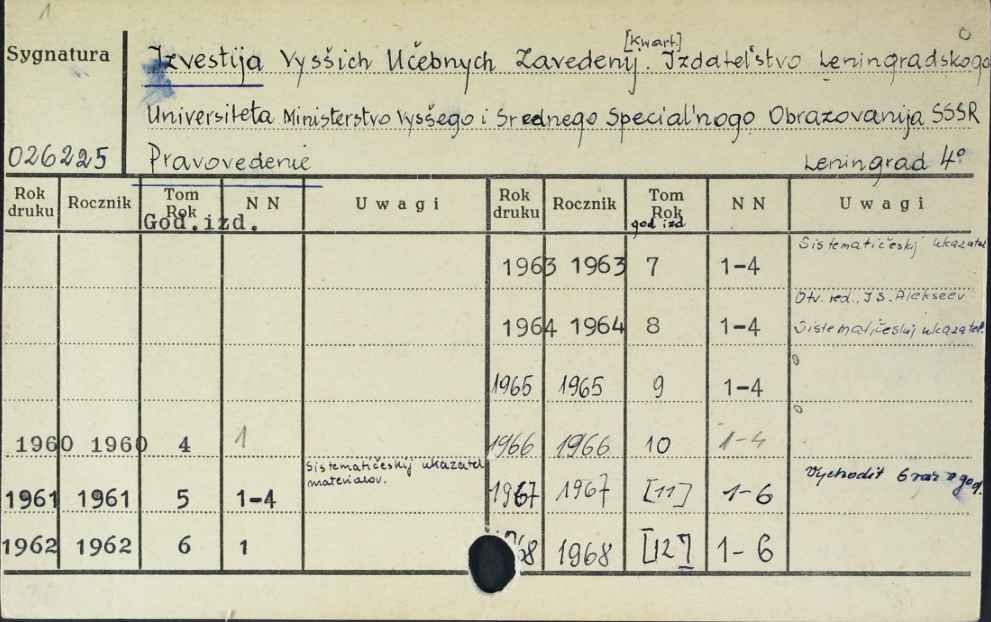 1
[Kwart.]
Sygnatura Izvestija Vysšich Učebnych Zavedenij. Izdatel'stvo Leningradskogo
Universiteta Ministerstvo Vysšego i Srednego Special'nogo Obrazovanija SSSR
026225 Pravovedenie Leningrad 4°
Rok druku Rocznik Tom Rok N N Uwagi Rok druku Rocznik Tom Rok N N Uwagi
God.izd. god izd
1963 1963 7 1-4 Sistematičeskij ukazatel
Otv. red. I.S. Alekseev
1964 1964 8 1-4 Sistematičeskij ukazatel.
1965 1965 9 1-4
1960 1960 4 1 1966 1966 10 1-4
Sistematičeskij ukazatel
materialov.
1961 1961 5 1-4 1967 1967 [11] 1-6 Vychodit 6 raz v god.
1962 1962 6 1 1968 [12] 1-6